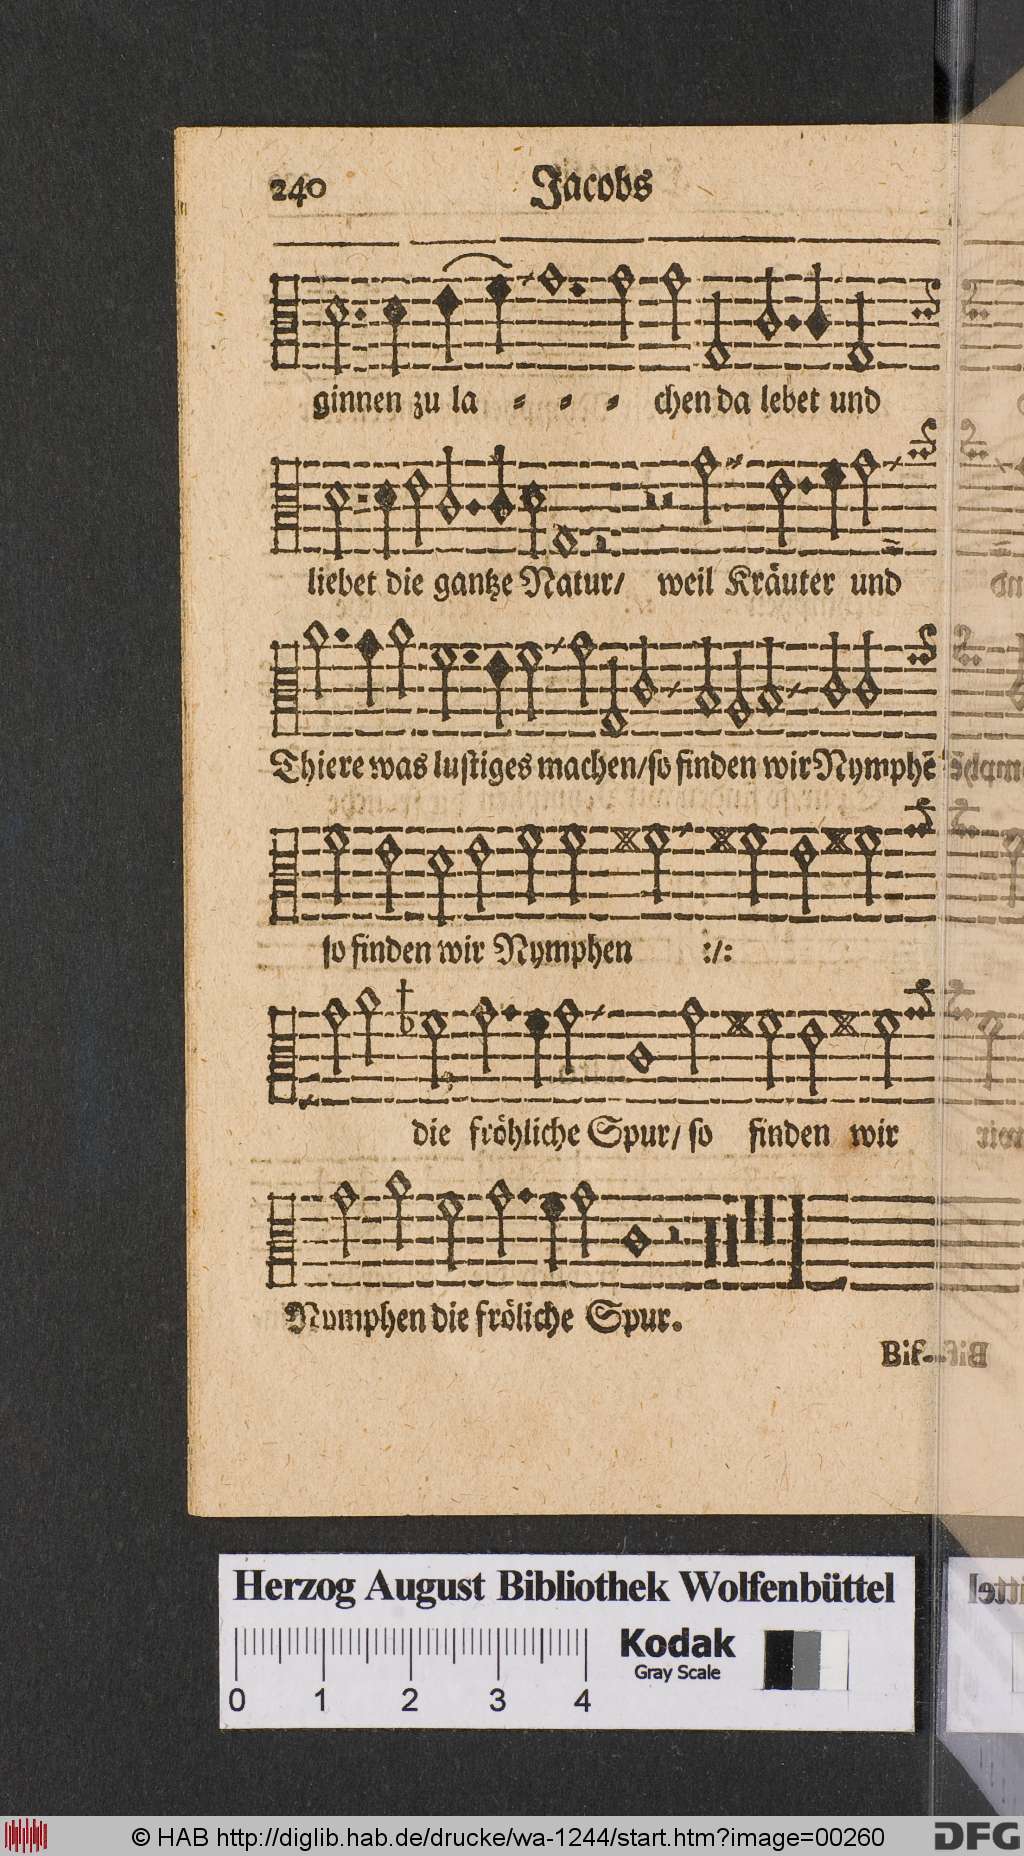 240 Jacobs
ginnen zu la = = = chen da lebet und
liebet die gantze Natur/ weil Kräuter und
Thiere was lustiges machen/so finden wir Nymphē
so finden wir Nymphen :/:
die fröhliche Spur/ so finden wir
Nymphen die fröliche Spur.
Bis-
Herzog August Bibliothek Wolfenbüttel
Kodak
Gray Scale
0 1 2 3 4
© HAB http://diglib.hab.de/drucke/wa-1244/start.htm?image=00260
DFG